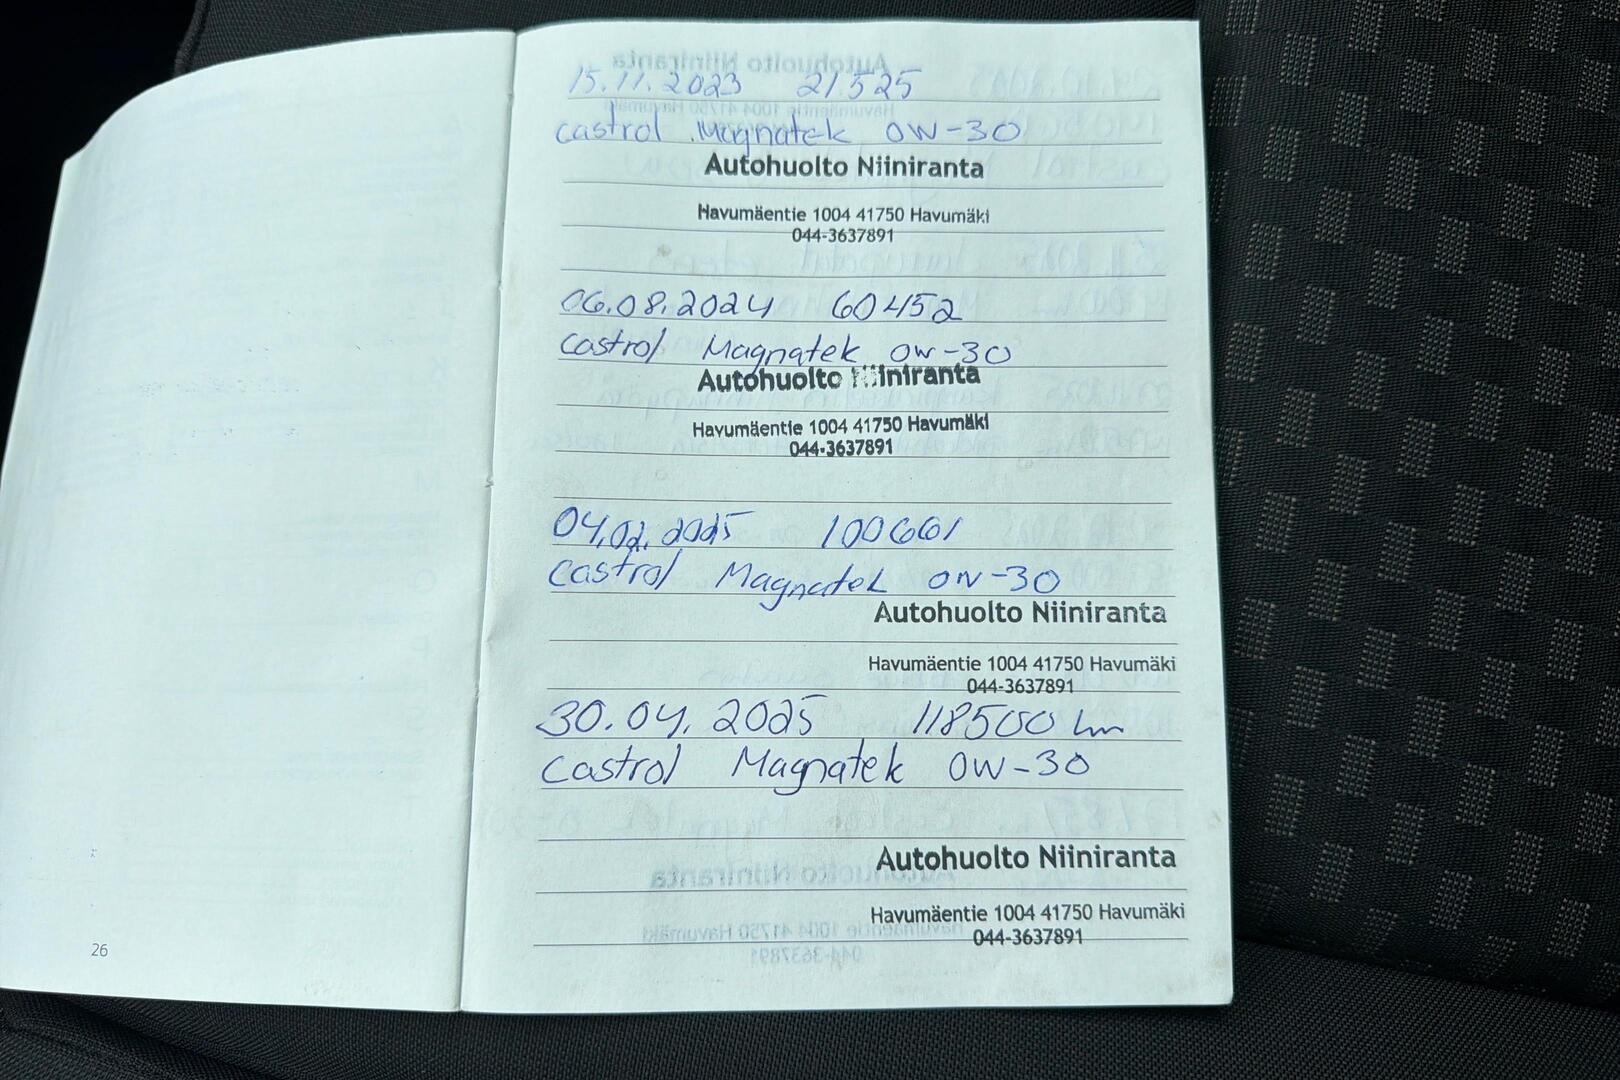 15.11.2023 21.525
Castrol Magnatek 0W-30
Autohuolto Niiniranta
Havumäentie 1004 41750 Havumäki
044-3637891
06.08.2024 60452
Castrol Magnatek 0W-30
Autohuolto Niiniranta
Havumäentie 1004 41750 Havumäki
044-3637891
04.02.2025 100661
Castrol Magnatek 0W-30
Autohuolto Niiniranta
Havumäentie 1004 41750 Havumäki
044-3637891
30.04.2025 118500 km
Castrol Magnatek 0W-30
Autohuolto Niiniranta
Havumäentie 1004 41750 Havumäki
044-3637891
26